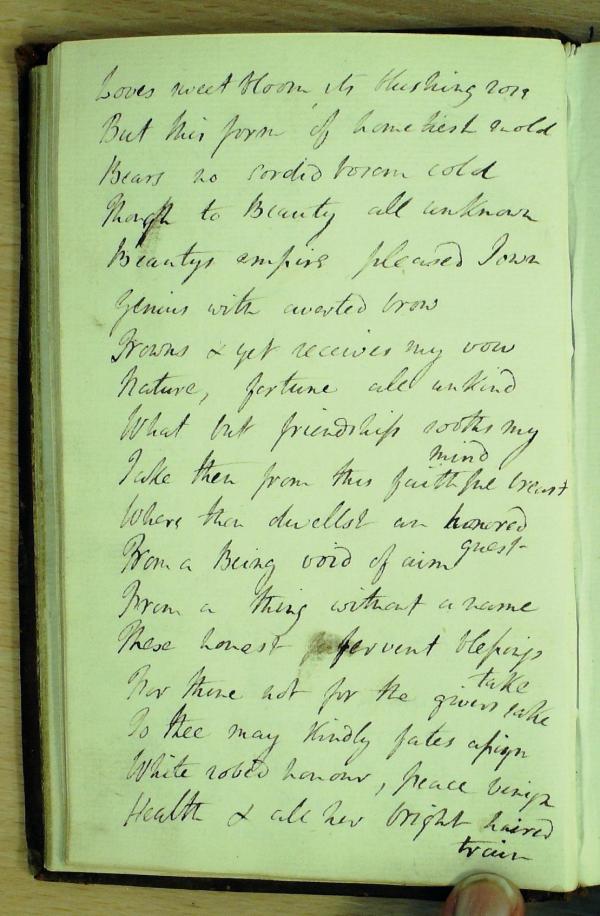 Loves sweet bloom, its blushing rose
But this form of homeliest mold
Bears no sordid bosom cold
Though to Beauty all unknown
Beautys empire pleased I own
Genius with averted brow
Frowns & yet receives my vow
Nature, fortune all unkind
What but friendship sooths my
mind
Take then from this faithful breast
Where thou dwellst an honored
guest
From a Being void of aim
From a thing without a name
These honest fervent blessings
take
For thine not for the givers sake
To thee may kindly fates assign
White robed honour, peace benign
Health & all her bright haired
train